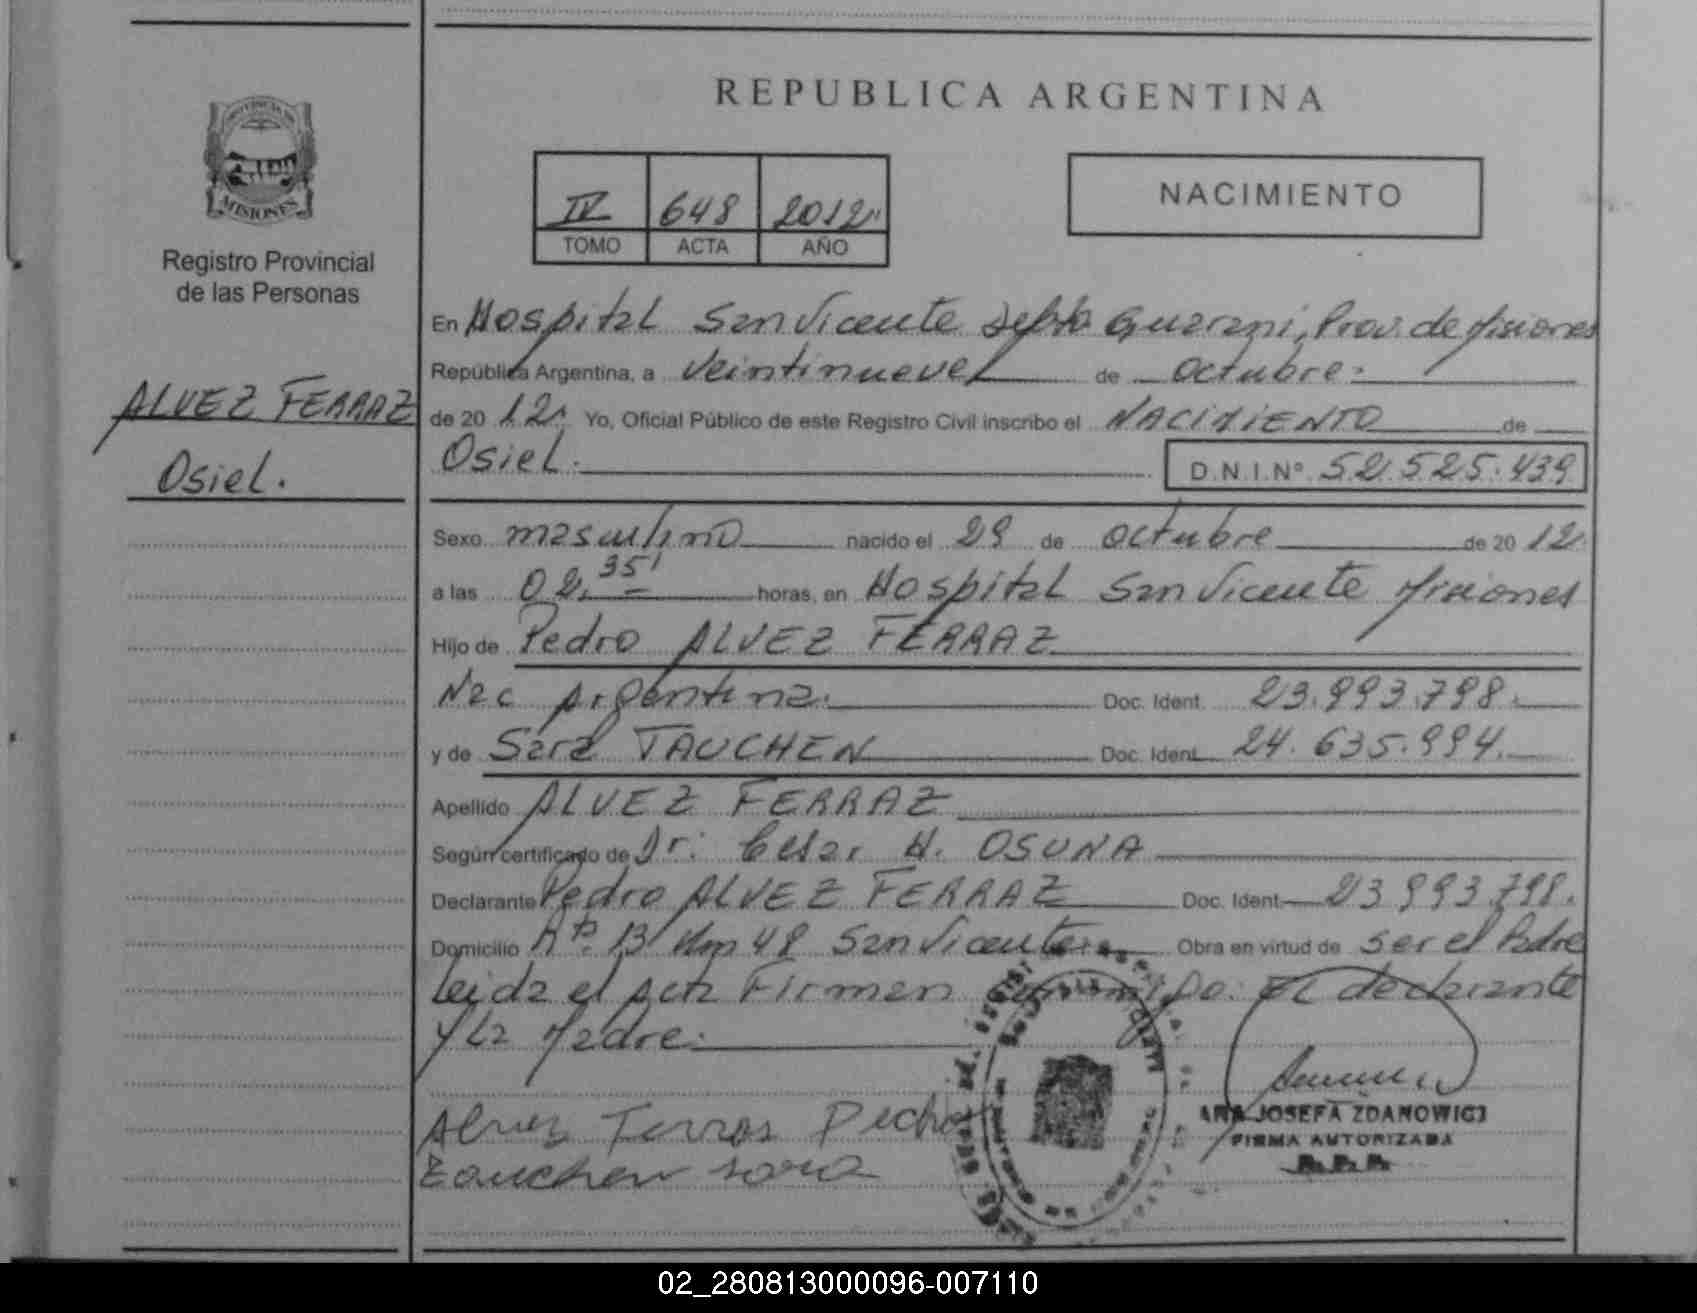 REPUBLICA ARGENTINA
PROVINCIA DE
MISIONES
Registro Provincial
de las Personas
ALVEZ FERRAZ
Osiel.
IV 648 2012
TOMO ACTA AÑO
NACIMIENTO
En Hospital San Vicente Depto Guarani, Prov. de Misiones
República Argentina, a veintinueve de octubre
de 2012 Yo, Oficial Público de este Registro Civil inscribo el NACIMIENTO de
Osiel. D.N.I.Nº 52.525.439
Sexo masculino nacido el 29 de octubre de 2012
a las 02,35' horas, en Hospital San Vicente Misiones
Hijo de Pedro ALVEZ FERRAZ
Nac Argentina. Doc. Ident. 23.993.798.
y de Sara TAUCHEN Doc. Ident. 24.635.994.
Apellido ALVEZ FERRAZ
Según certificado de Dr. Cesar H. OSUNA
Declarante Pedro ALVEZ FERRAZ Doc. Ident. 23.993.798.
Domicilio Rta. 13 Km 48 San Vicente Obra en virtud de ser el Padre
leida el acta Firman conmigo: El declarante
y la Madre:
Alves Ferras Pedro
Tauchen sara
ANA JOSEFA ZDANOWICZ
FIRMA AUTORIZADA
R.P.P.
02_280813000096-007110